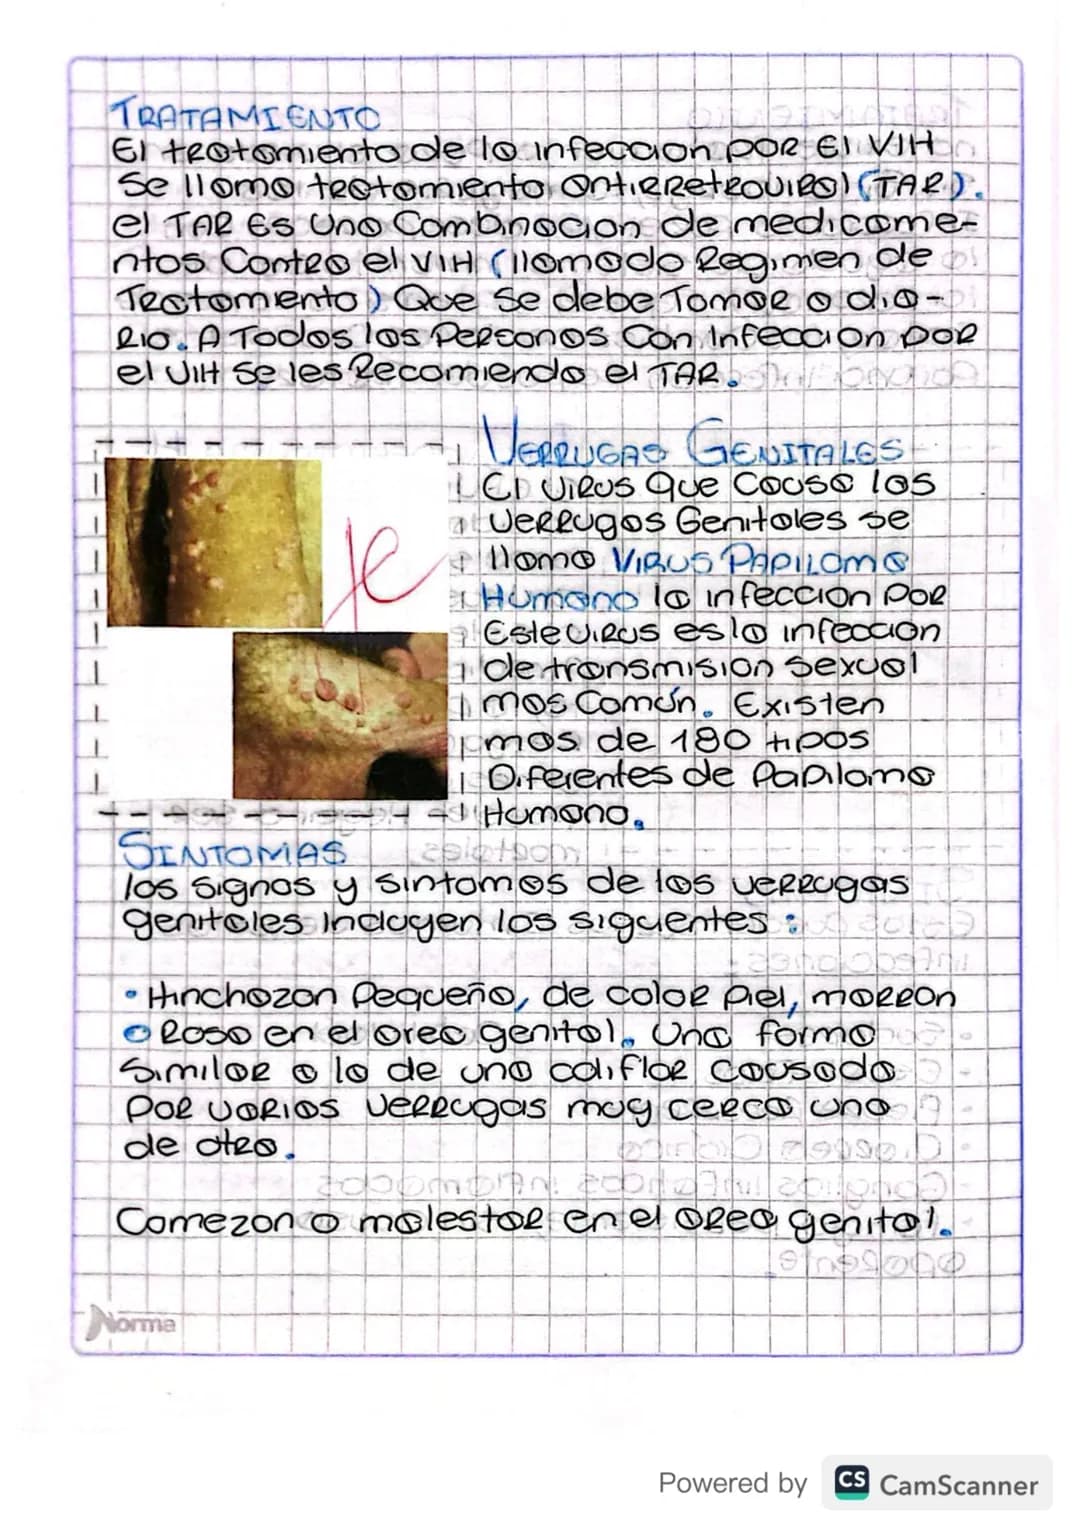 TRATAMIENTO
El tratamiento de la infeccion por El VIH
Se llama tratamiento antirretroviral (TAR).
el TAR Es una Combinacion de medicame-
ntos Contra el VIH (llamado Regimen de
Tratamiento) Que se debe Tomar a dia-
rio. A Todos las Personas Con Infeccion por
el VIH se les Recomienda el TAR.
VERRUGAS GENITALES
El virus que causa las
verrugas Genitales se
llama VIRUS PAPILOMA
Humano la infeccion por
Este virus es la infeccion
de transmision sexual
mas Común. Existen
mas de 180 tipos
Diferentes de Papiloma
Humano.
SINTOMAS
los signos y sintomas de las verrugas
genitales Incluyen los siguentes :
• Hinchazon Pequeño, de color Piel, marron
o Rosa en el area genital. Una forma
Similar a la de una coliflor causada
por varias verrugas muy cerca una
de otra.
Comezon o malestar en el area genital.
Norma
Powered by CS CamScanner